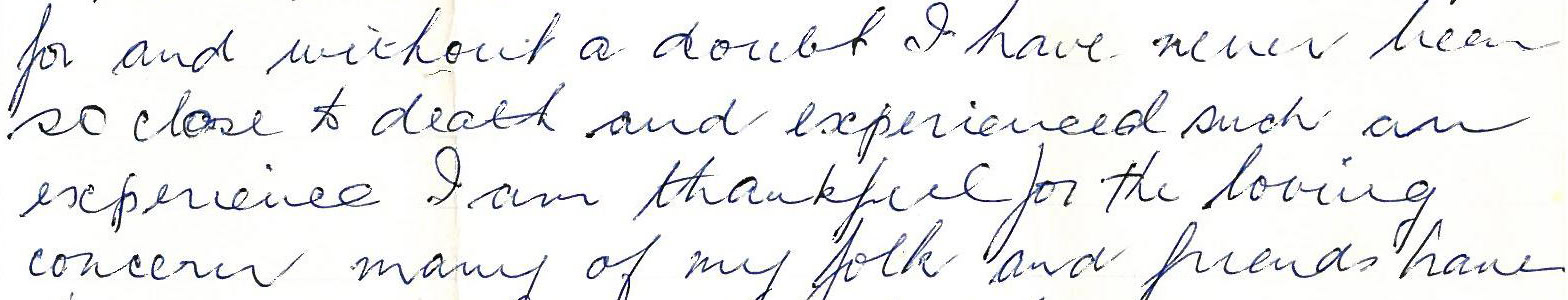 for and without a doubt I have never been
so close to death and experienced such an
experience I am thankful for the loving
concern many of my folk and friends have